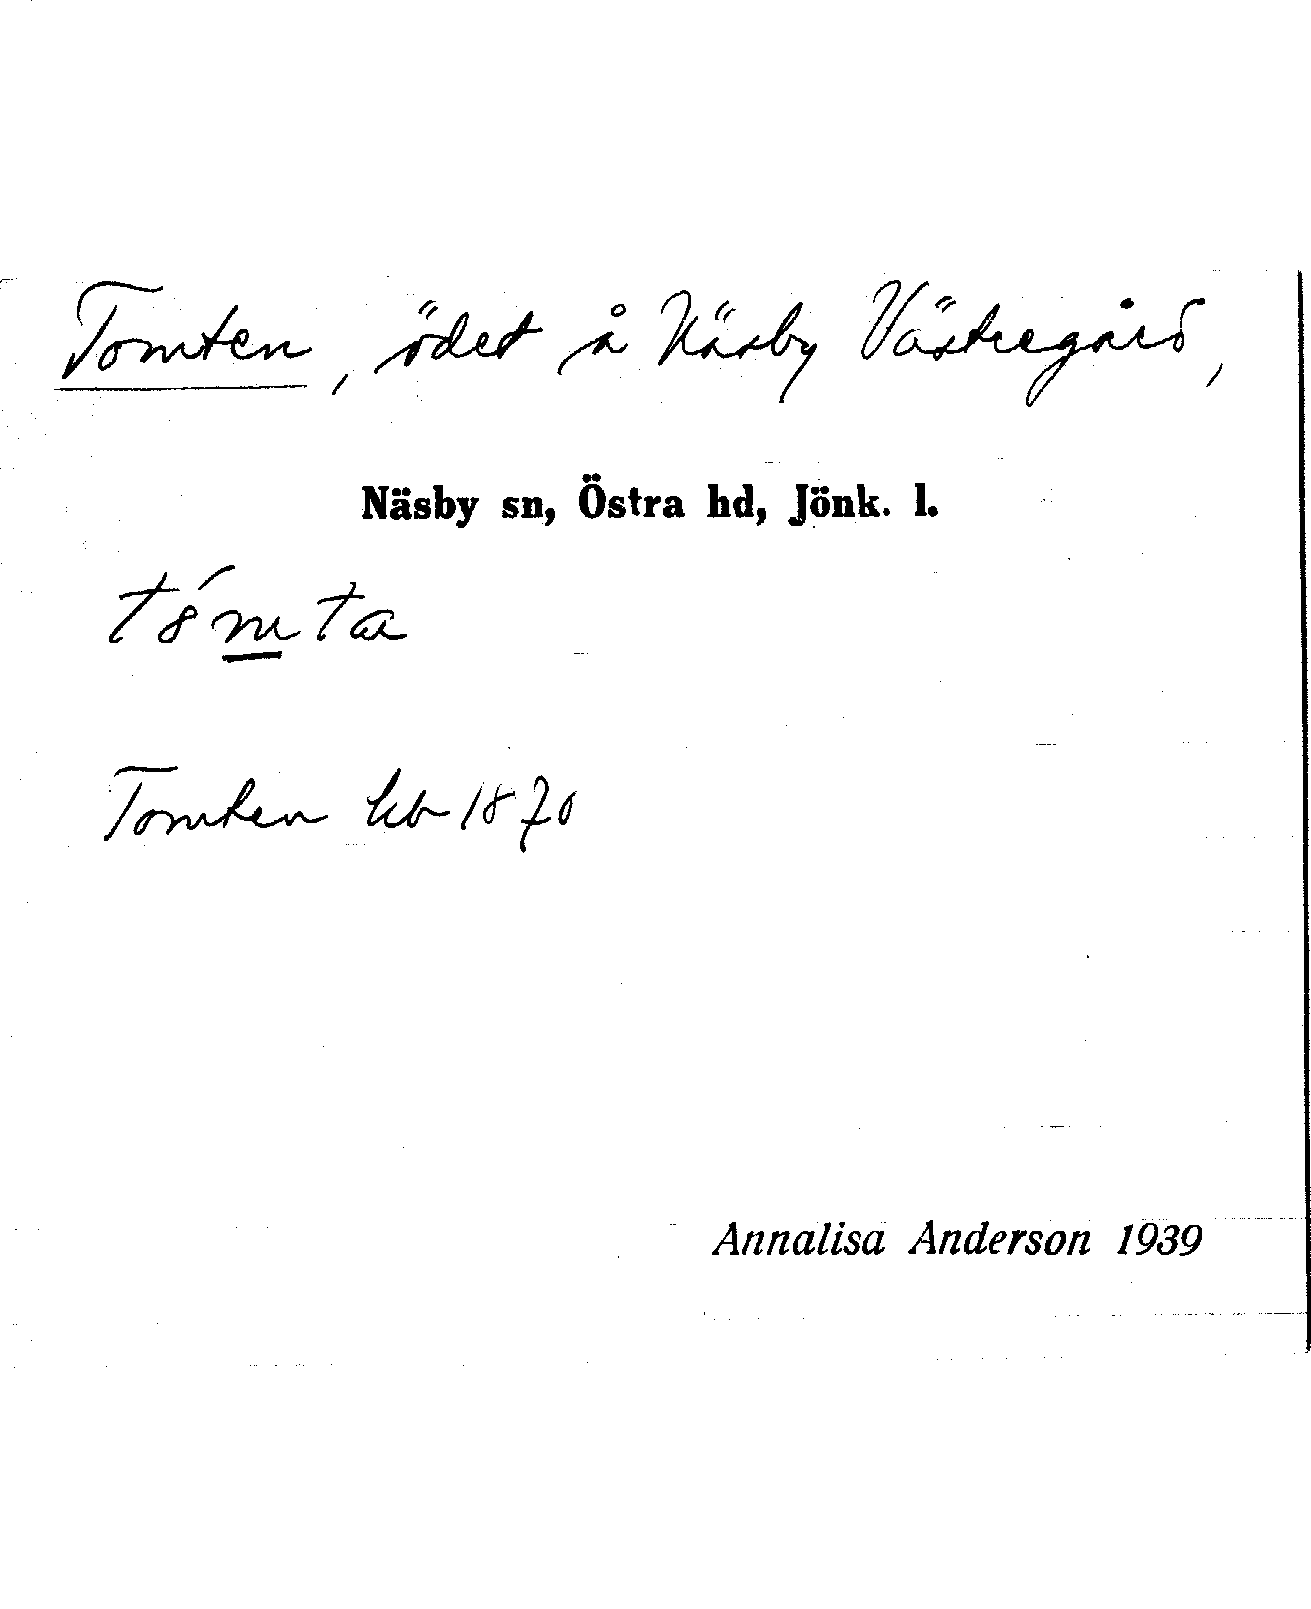 Tomten, ödet å Näsby Västregård,
Näsby sn, Östra hd, Jönk. l.
tȣ́m̲ta
Tomten kb 1870
Annalisa Anderson 1939